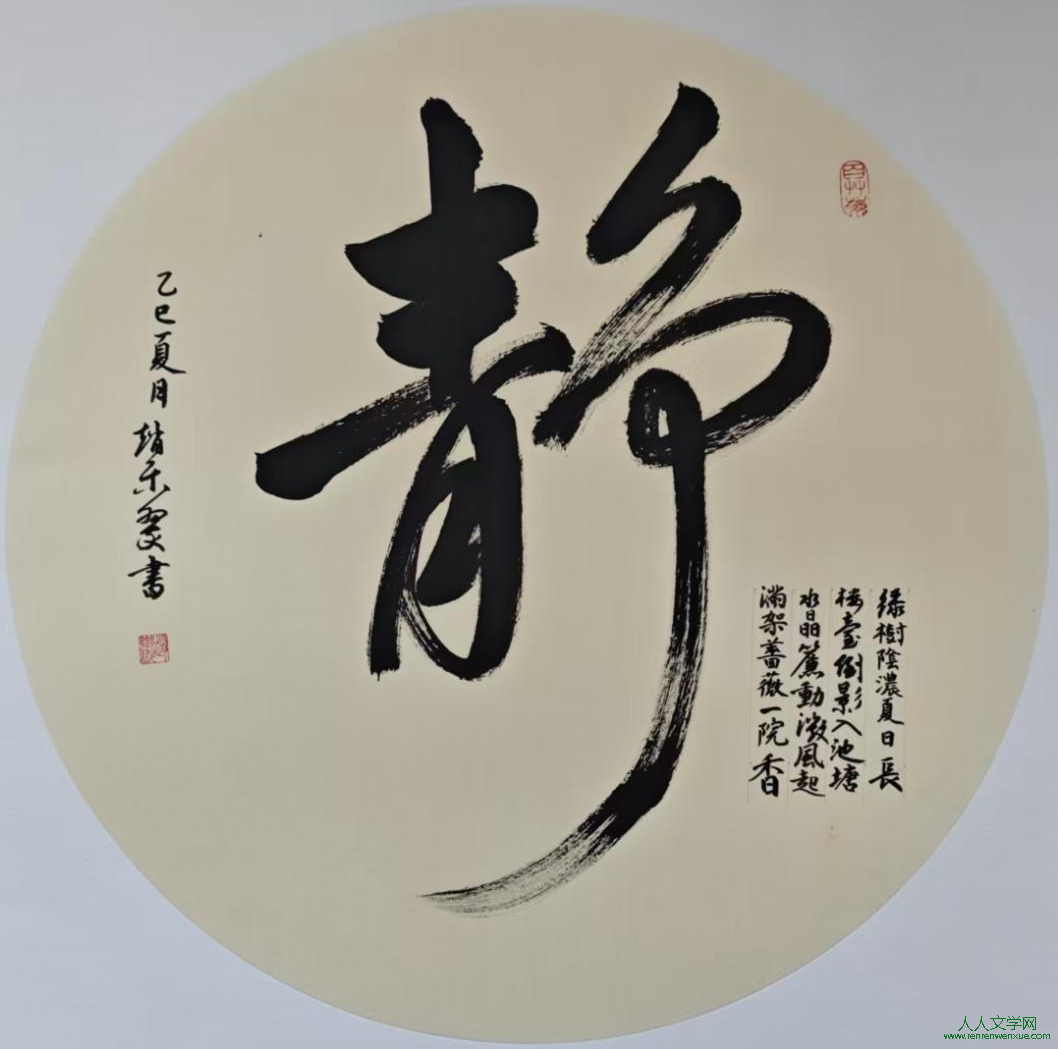 静
綠樹陰濃夏日長
楼臺倒影入池塘
水晶簾動微風起
滿架薔薇一院香
乙巳夏月 趙樂翠書
人人文学网
www.renrenwenxue.com